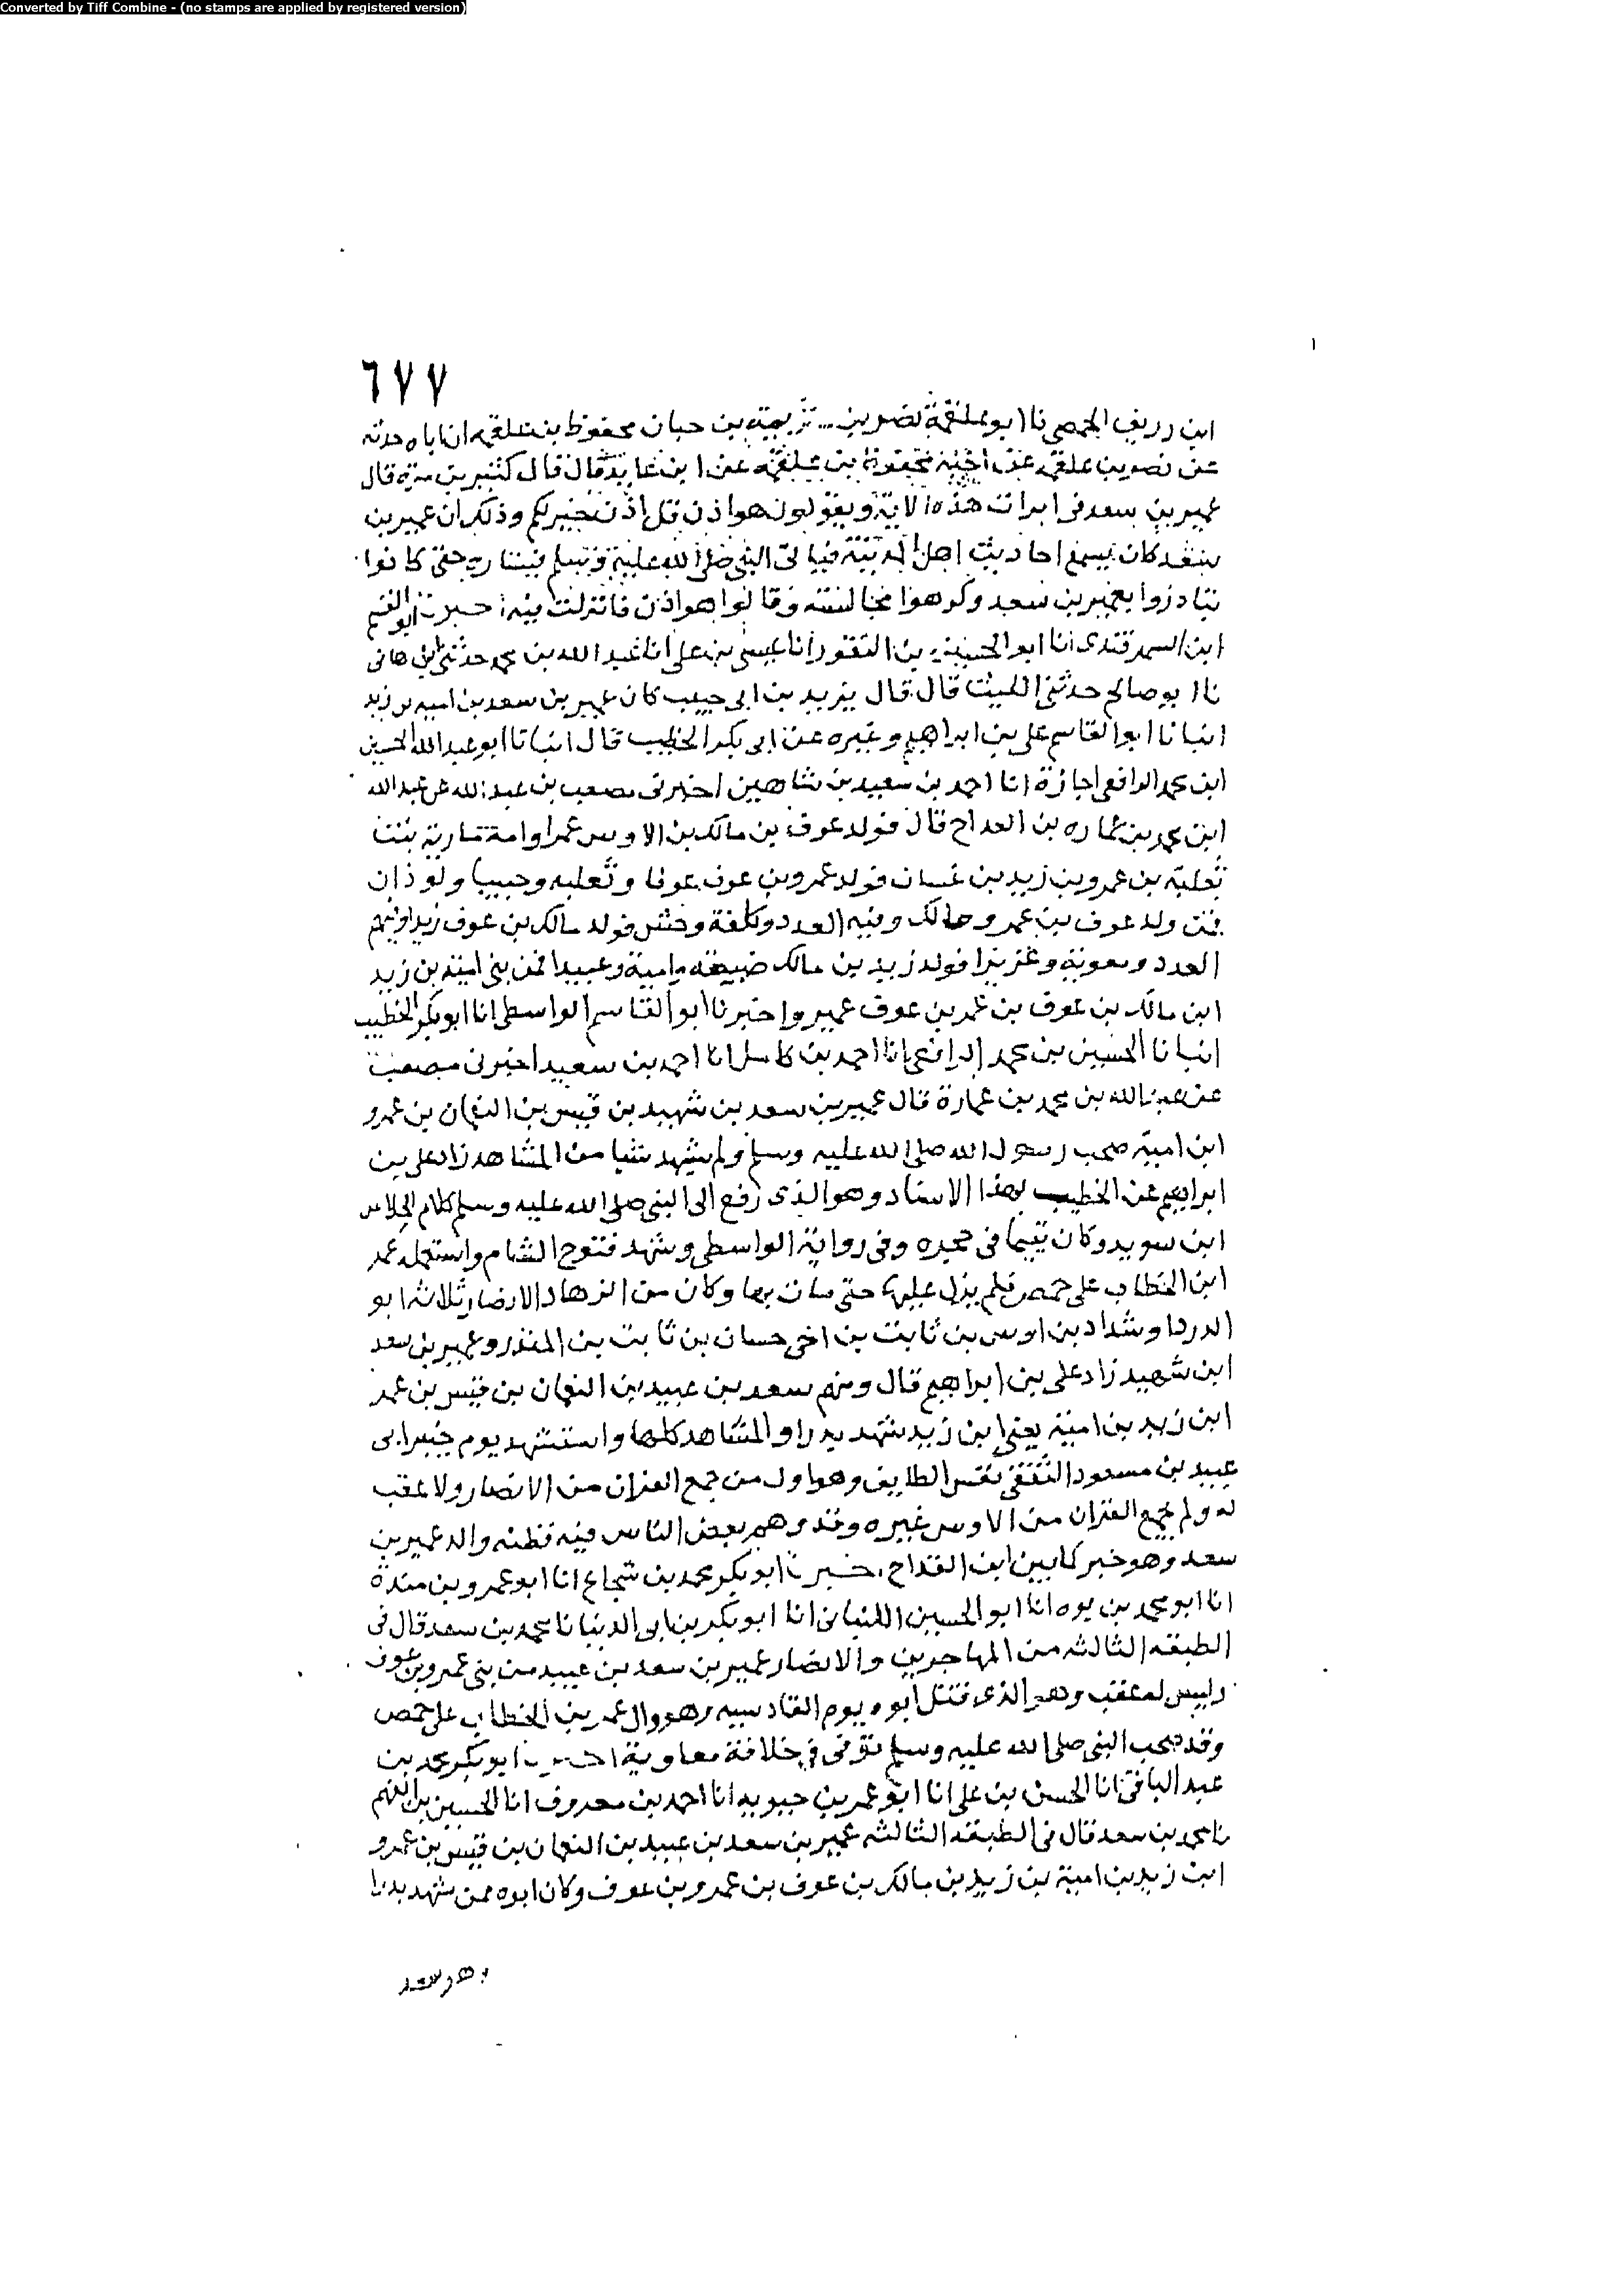 Converted by Tiff Combine - (no stamps are applied by registered version)
٦٧٧
ابن زريق الحمصي نا ابو علقمة نصر بن خزيمة بن حبان محفوظ بن علقمه ان اباه حدثه
عن نصر بن علقمه عن اخيه محفوظ بن علقمة عن ابن عايد قال قال كثير بن مرة قال
عمير بن سعد فى انزلت هذه الاية ويقولون هو اذن قل اذن خير لكم وذلك ان عمير بن
سعد كان يسمع احاديث اهل المدينة فياتى النبي صلى الله عليه وسلم فيساره حتى كانوا
يتاذوا بعمير بن سعد وكرهوا مجالسته وقالوا هو اذن فانزلت فيه اخبرنا ابو القسم
ابن السمرقندى انا ابو الحسين بن النقور انا عيسى بن علي انا عبد الله بن محمد حدثني ابن هانى
نا ابو صالح حدثني الليث قال قال يزيد بن ابى حبيب كان عمير بن سعد بن اميه بن زيد
انبانا ابو القاسم علي بن ابراهيم وغيره عن ابى بكر الخطيب قال انبانا ابو عبد الله الحسين
ابن محمد الرافعي اجازة انا احمد بن سعيد بن شاهين اخبرنى مصعب بن عبد الله عن عبد الله
ابن محمد بن عماره بن العداح قال فولد عوف بن مالك بن الاوس عمرا وامة مارية بنت
ثعلبة بن عمرو بن زيد بن غسان فولد عمرو بن عوف عوفا وثعلبه وحبيبا ولوذان
فمن ولد عوف بن عمرو مالك وفيه العدد وكلفة وحنش فولد مالك بن عوف زيدا وفيهم
العدد ومعوية وعزيزا فولد زيد بن مالك ضبيعه وامية وعبيدا فمن بنى امية بن زيد
ابن مالك بن عوف بن عمر بن عوف عمير واخبرنا ابو القاسم الواسطي انا ابو بكر الخطيب
انبانا الحسين بن محمد الرافعي انا احمد بن كامل انا احمد بن سعيد اخبرنى مصعب
عن عبد الله بن محمد بن عمارة قال عمير بن سعد بن شهيد بن قيس بن النعمان بن عمرو
ابن امية صحب رسول الله صلى الله عليه وسلم ولم يشهد شيا من المشاهد زاد علي بن
ابراهيم عن الخطيب بهذا الاسناد وهو الذى رفع الى النبي صلى الله عليه وسلم كلام الجلاس
ابن سويد وكان يتيما فى حجره وفى رواية الواسطي وشهد فتوح الشام واستعمله عمر
ابن الخطاب على حمص فلم يزل عليها حتى مات بها وكان من الزهاد الانصار ثلاثه ابو
الدردا وشداد بن اوس بن ثابت بن اخى حسان بن ثابت بن المنذر وعمير بن سعد
ابن شهيد زاد علي بن ابراهيم قال ومنهم سعد بن عبيد بن النعمان بن قيس بن عمر
ابن زيد بن امية يعني ابن زيد شهد بدرا والمشاهد كلها واستشهد يوم جسر ابى
عبيد بن مسعود الثقفى بقس الطايف وهو اول من جمع القران من الانصار ولا عقب
له ولم يجمع القران من الاوس غيره وقد وهم بعض الناس فيه فظنه والد عمير بن
سعد وهو خبر كما بين ابن القداح اخبرنا ابو بكر محمد بن شجاع انا ابو عمرو بن مندة
انا ابو محمد بن يوه انا ابو الحسين اللنبانى انا ابو بكر بن ابى الدنيا نا محمد بن سعد قال فى
الطبقه الثالثه من المهاجرين والانصار عمير بن سعد بن عبيد من بنى عمرو بن عوف
وليس له عقب وهو الذى قتل ابوه يوم القادسيه وهو وال عمر بن الخطاب على حمص
وقد صحب النبى صلى الله عليه وسلم توفى فى خلافة معاوية اخبرنا ابو بكر محمد بن
عبد الباقى انا الحسن بن على انا ابو عمر بن حيويه انا احمد بن معروف انا الحسين بن الفهم
نا محمد بن سعد قال فى الطبقه الثالثه عمير بن سعد بن عبيد بن النعمان بن قيس بن عمرو
ابن زيد بن امية بن زيد بن مالك بن عوف بن عمرو بن عوف وكان ابوه ممن شهد بدرا
وهو سعد